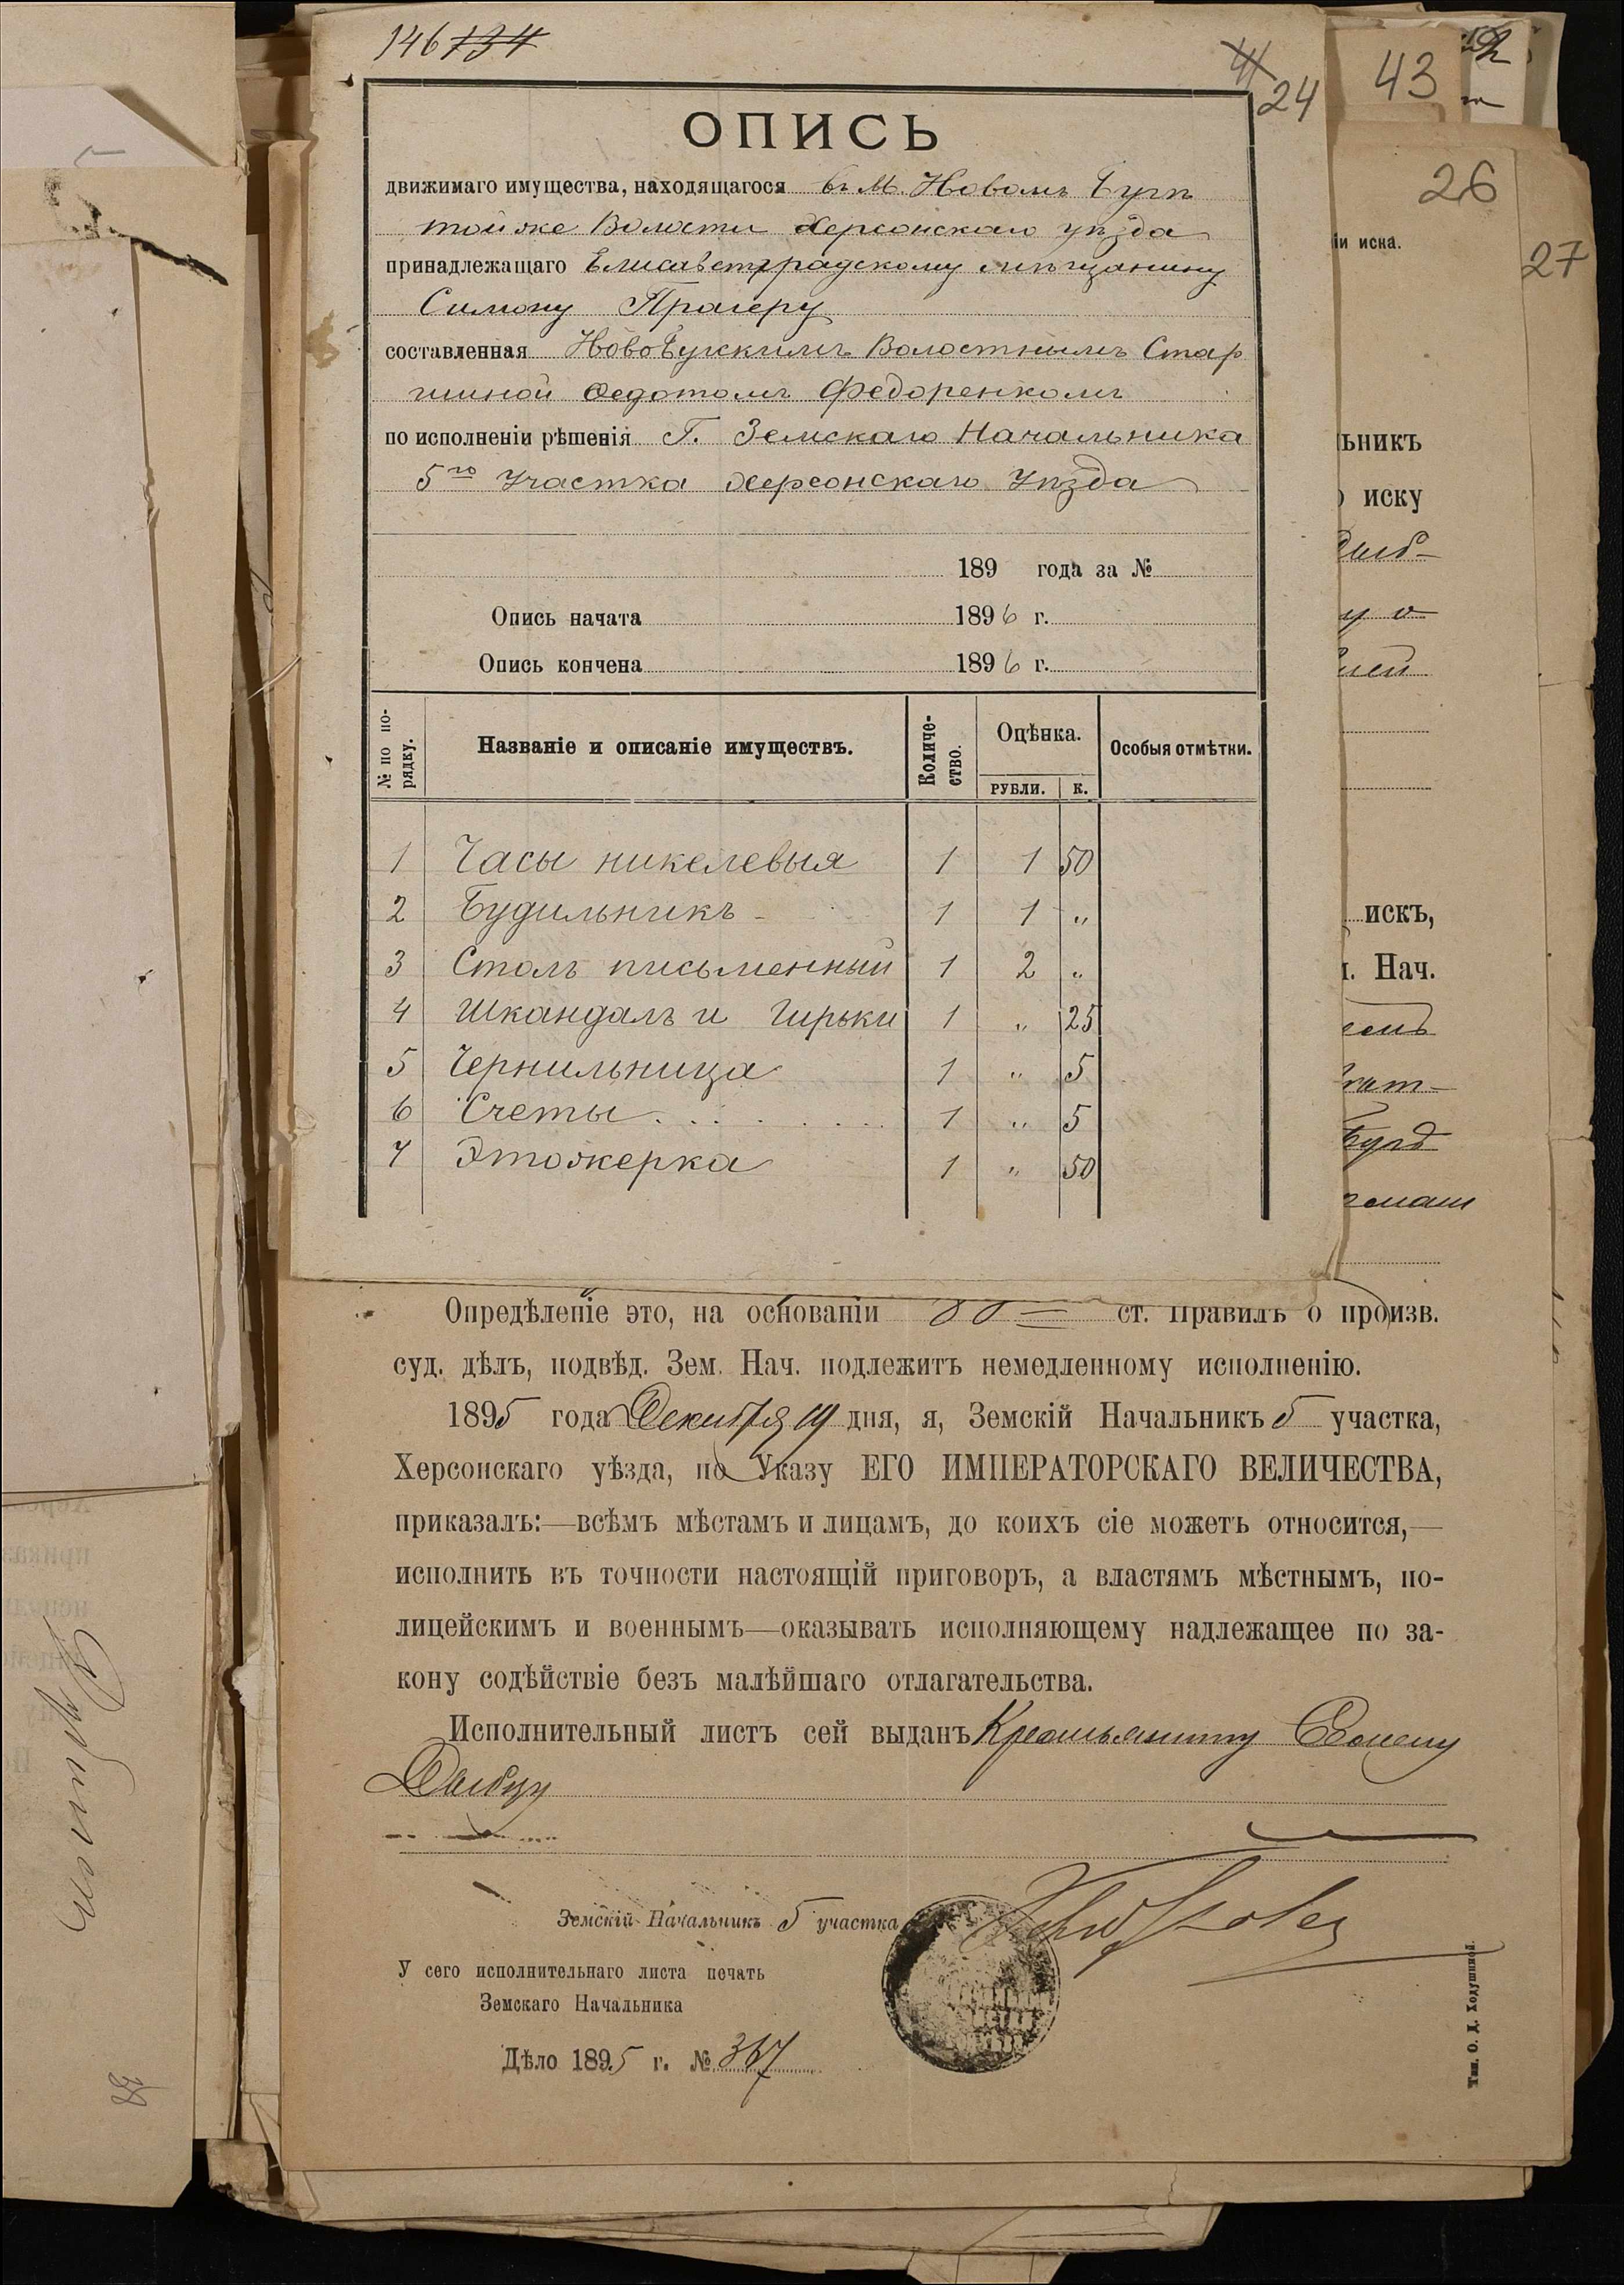 146 134
41
24
43
26
27
ОПИСЬ
движимаго имущества, находящагося въ М. Новомъ Бугѣ
той же Волости Херсонскаго уѣзда
принадлежащаго Елисаветградскому мѣщанину
Симону Прагеру
составленная НовоБугскимъ Волостнымъ Стар
шиной Ѳедотомъ Федоренкомъ
по исполненіи рѣшенія Г. Земскаго Начальника
5го Участка Херсонскаго Уѣзда
189 года за №
Опись начата 1896 г.
Опись кончена 1896 г.
№ по по-
рядку.
Названіе и описаніе имуществъ.
Количе-
ство.
Оцѣнка.
РУБЛИ. К.
Особыя отмѣтки.
1 Часы никелевыя 1 1 50
2 Будильникъ 1 1 "
3 Столъ письменный 1 2 "
4 Шкандалъ и Гирьки 1 " 25
5 Чернильница 1 " 5
6 Счеты 1 " 5
7 Этожерка 1 " 50
іи иска.
ьникъ
иску
искъ,
Нач.
Опредѣленіе это, на основаніи ст. Правилъ о произв.
суд. дѣлъ, подвѣд. Зем. Нач. подлежитъ немедленному исполненію.
1895 года Декабря 19 дня, я, Земскій Начальникъ 5 участка,
Херсонскаго уѣзда, по Указу ЕГО ИМПЕРАТОРСКАГО ВЕЛИЧЕСТВА,
приказалъ:—всѣмъ мѣстамъ и лицамъ, до коихъ сіе можетъ относится,—
исполнить въ точности настоящій приговоръ, а властямъ мѣстнымъ, по-
лицейскимъ и военнымъ—оказывать исполняющему надлежащее по за-
кону содѣйствіе безъ малѣйшаго отлагательства.
Исполнительный листъ сей выданъ Крестьянину
Земскій Начальникъ 5 участка
У сего исполнительнаго листа печать
Земскаго Начальника
Дѣло 1895 г. № 367
Тип. О. Д. Ходушиной